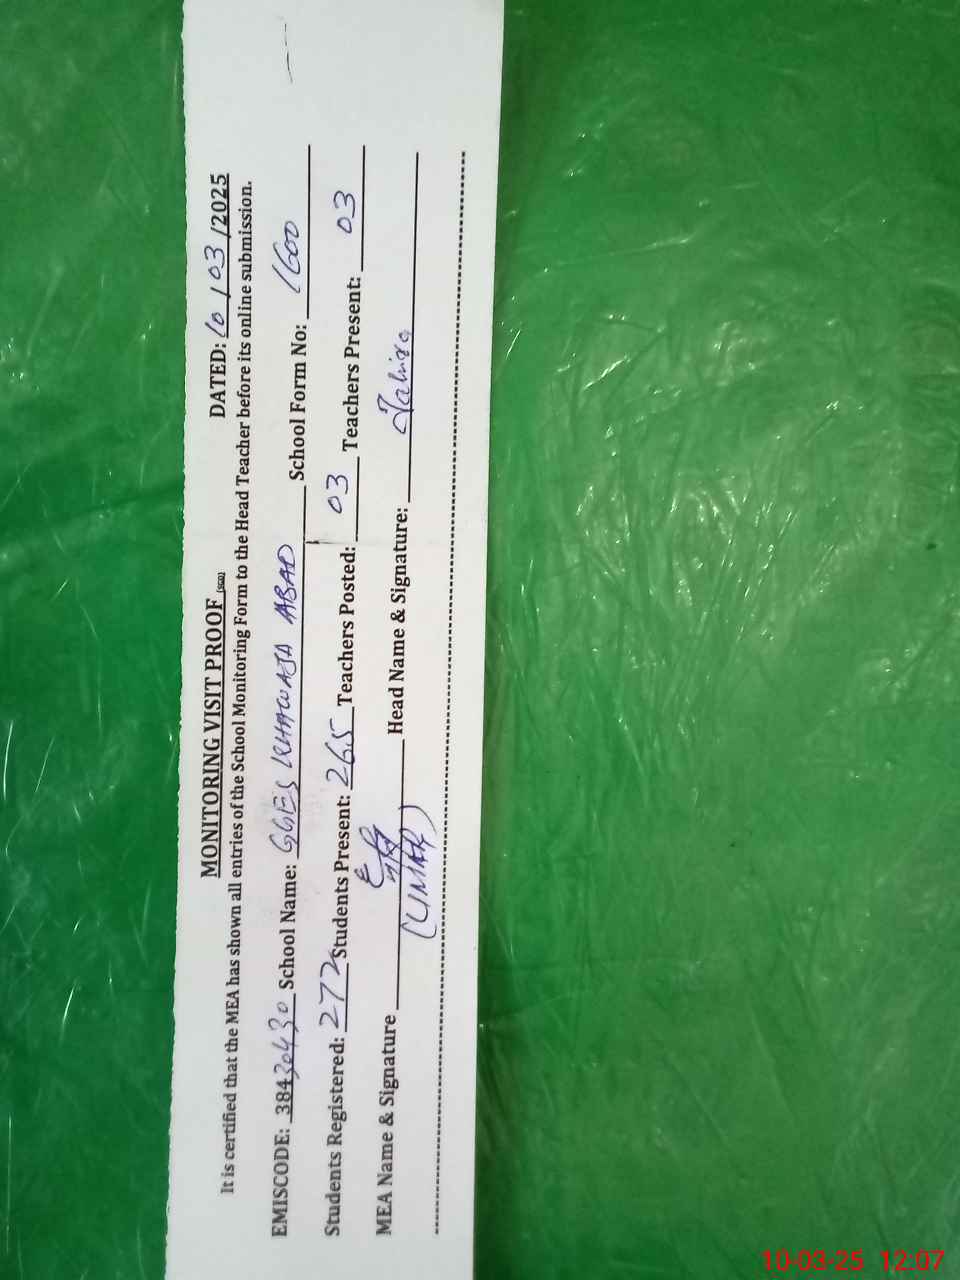 MONITORING VISIT PROOF (SED) DATED: 10/03/2025
It is certified that the MEA has shown all entries of the School Monitoring Form to the Head Teacher before its online submission.
EMISCODE: 38430430 School Name: GGES KHAWAJA ABAD School Form No: 1600
Students Registered: 272 Students Present: 265 Teachers Posted: 03 Teachers Present: 03
MEA Name & Signature (UMAR) Head Name & Signature: Tahira
10-03-25 12:07